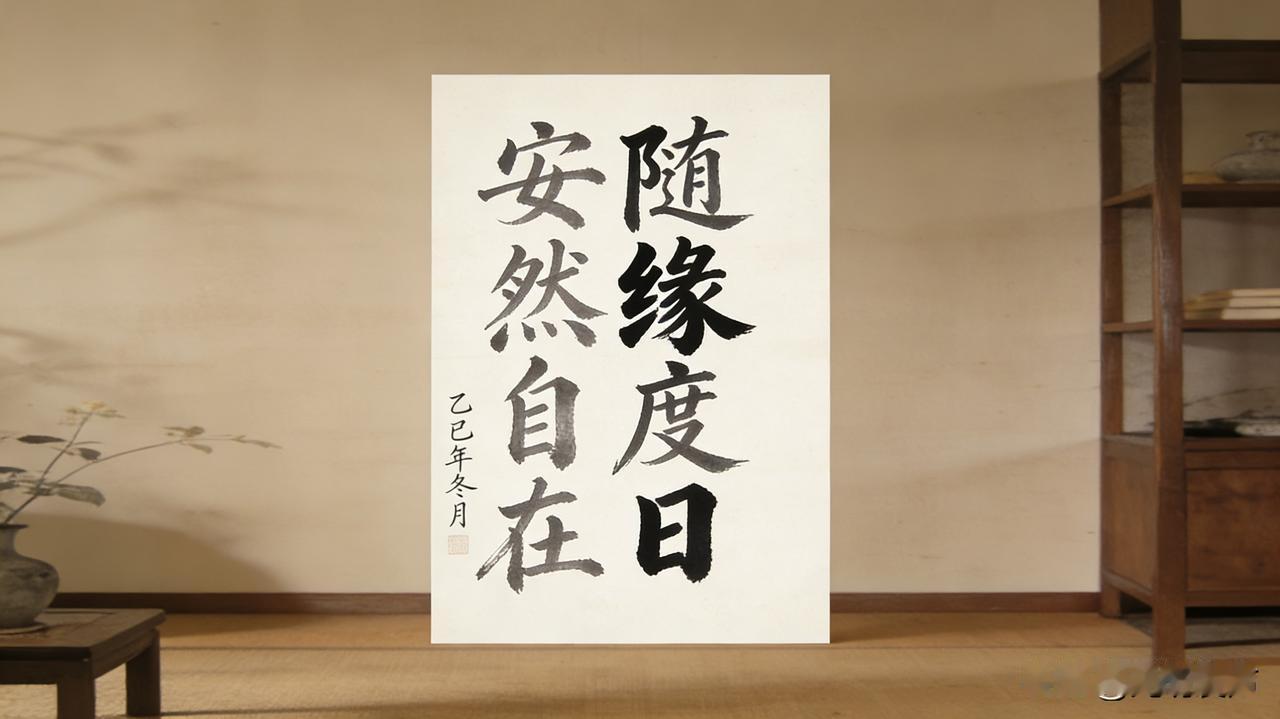 随缘度日
安然自在
乙巳年冬月